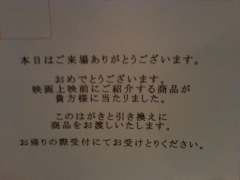 本日はご来場ありがとうございます。
おめでとうございます。
映画上映前にご紹介する商品が
貴方様に当たりました。
このはがきと引き換えに
商品をお渡しいたします。
お帰りの際受付にてお受けとりください。